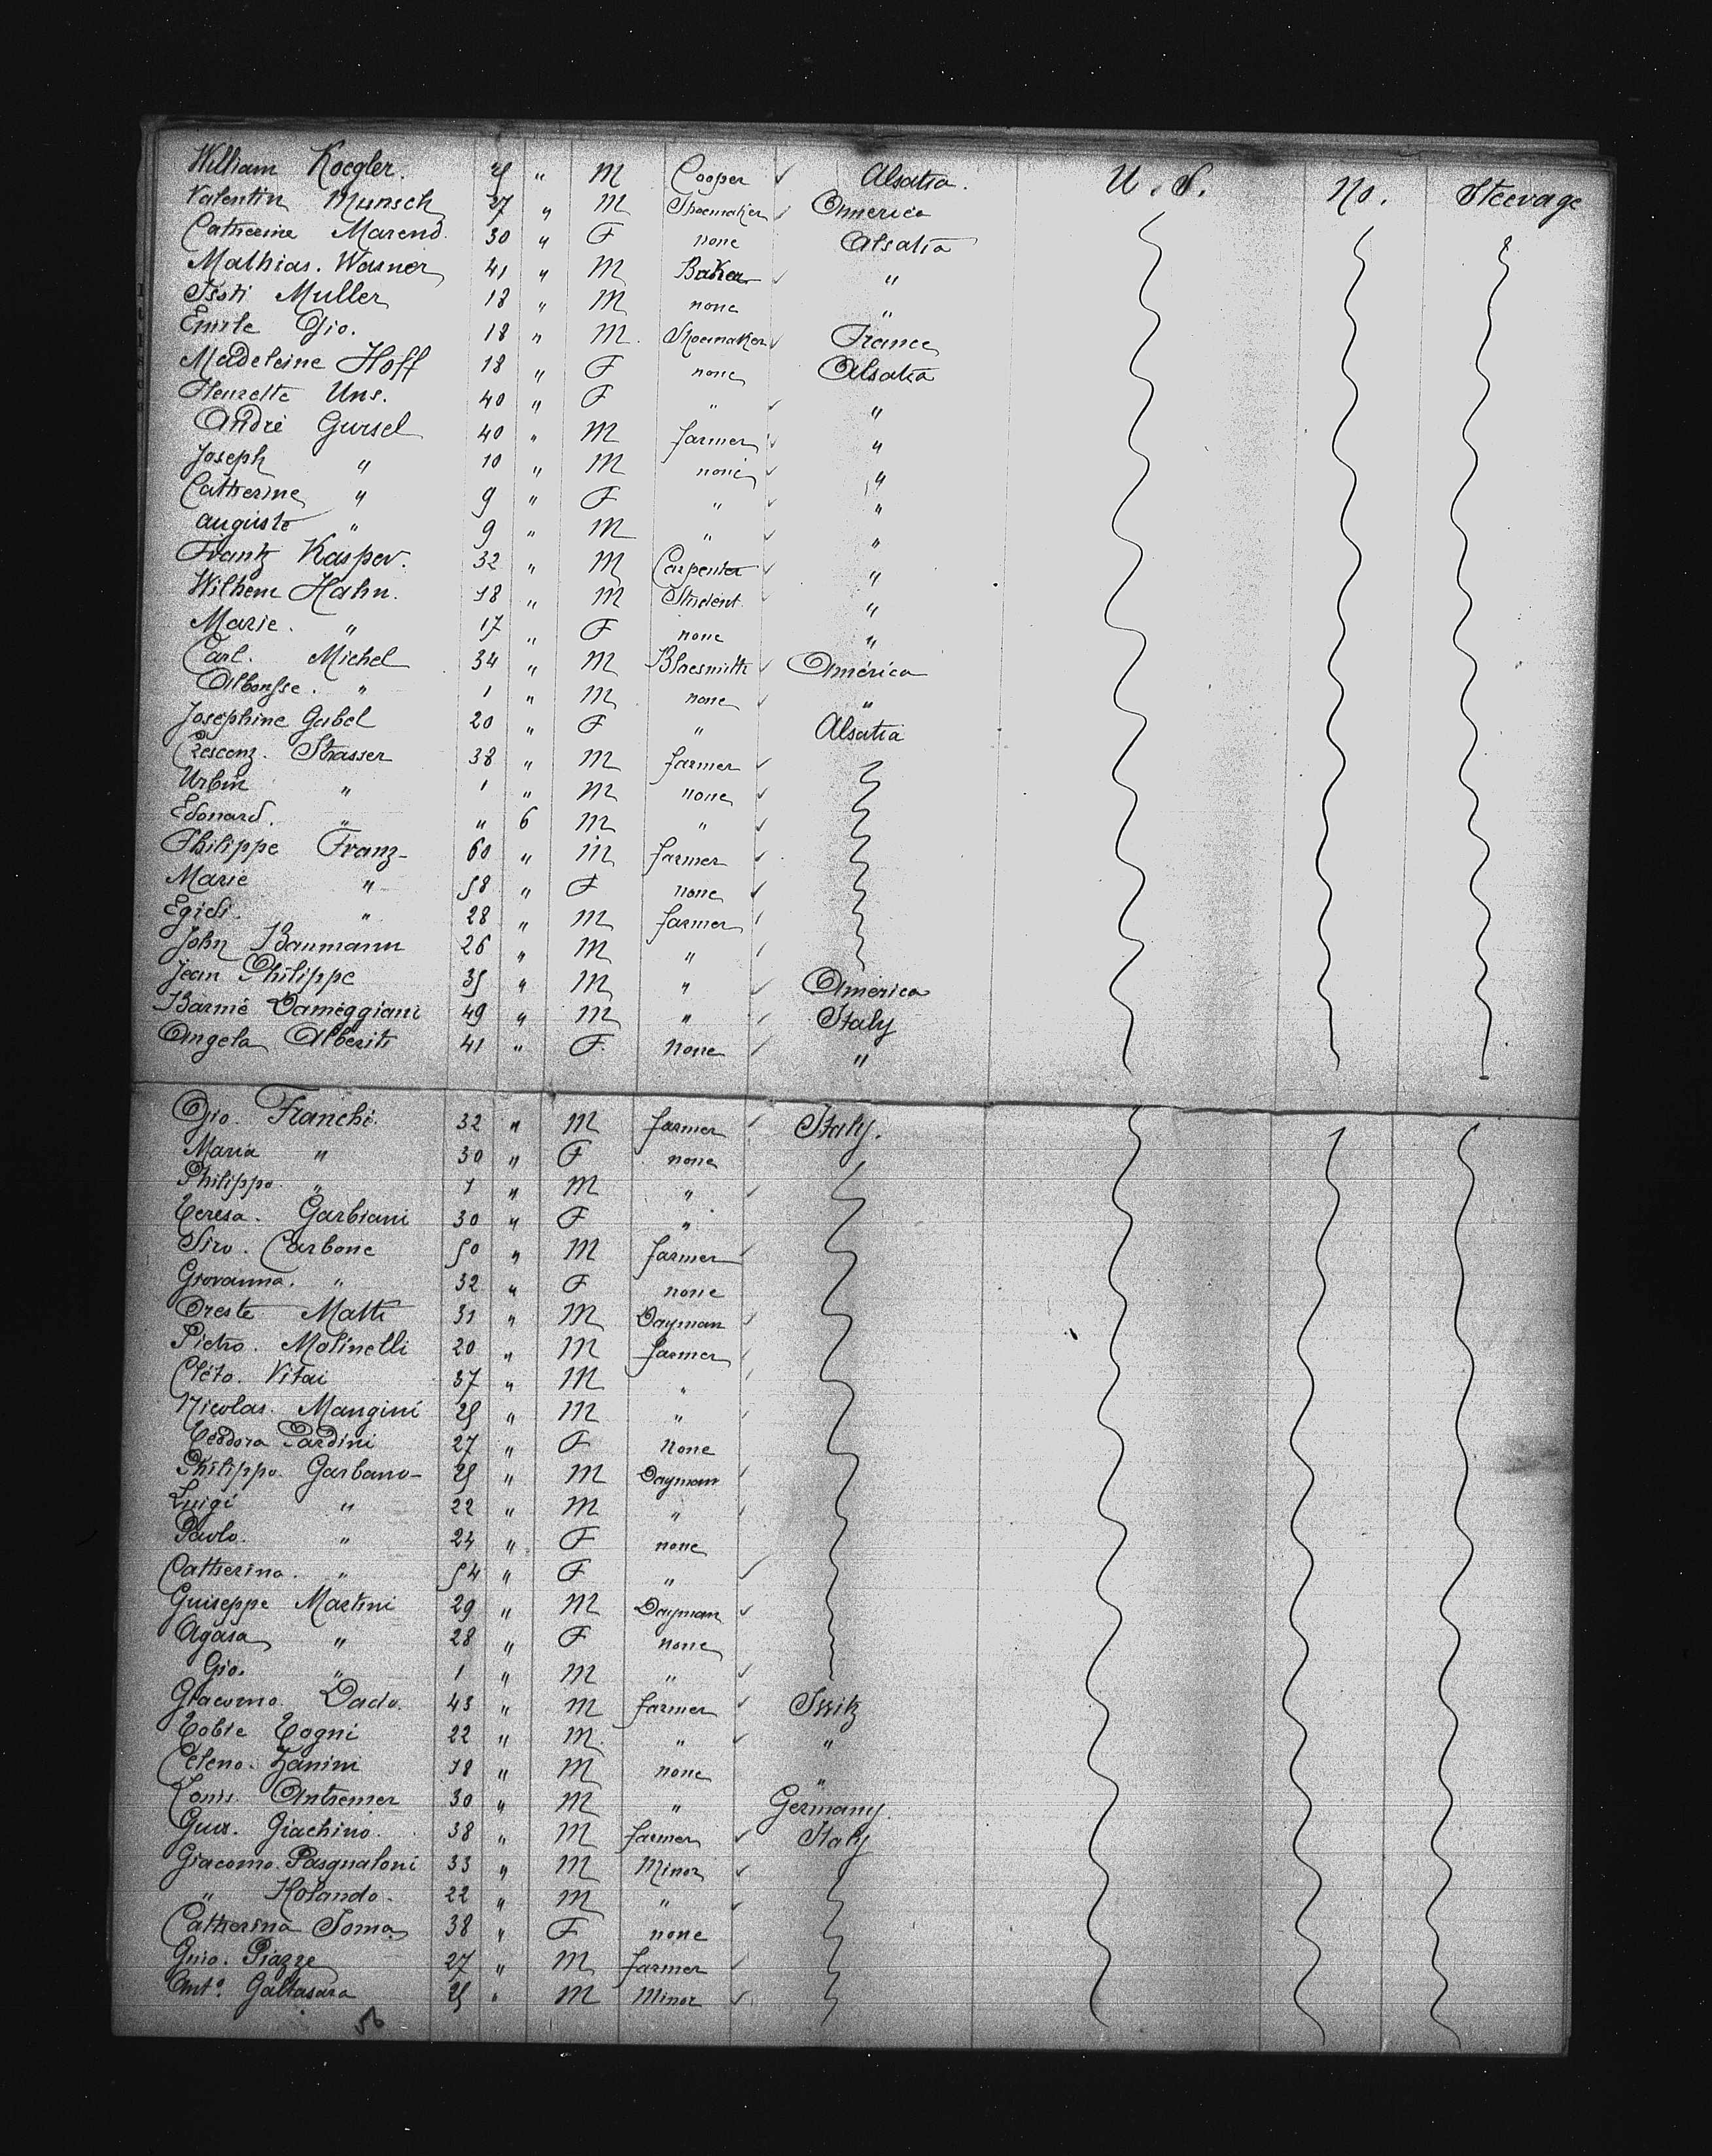 William Koegler. 25 " M Cooper ✓ Alsatia. U. S. No. Steerage
Valentin Munsch 27 " M Shoemaker ✓ America
Catherine Marend. 30 " F none Alsatia
Mathias. Wasner 41 " M Baker ✓ "
Muller 18 " M none "
Emile Gio. 18 " M. Shoemaker ✓ France
Madeleine Hoff 18 " F none Alsatia
Henrette Uns. 40 " F " ✓ "
André Gursel 40 " M farmer ✓ "
Joseph " 10 " M none ✓ "
Catherine " 9 " F " ✓ "
auguste " 9 " M " ✓ "
Frantz Kasper. 32 " M Carpenter ✓ "
Wilhem Hahn. 18 " M Student ✓ "
Marie. " 17 " F none "
Carl. Michel 34 " M Blacsmith ✓ América
" 1 " M none ✓ "
Joséphine Gabel 20 " F " Alsatia
Crescenz. Strasser 38 " M farmer ✓
Urbin " 1 " M none ✓
Edouard. " " 6 M " ✓
Philippe Franz- 60 " M farmer ✓
Marie " 58 " F none ✓
Egidi. " 28 " M farmer
John Baumann 26 " M "
Jean Philippe 35 " M " ✓ America
Barmé Dameggiani 49 " M " ✓ Italy
Angela Alberiti 41 " F. none ✓ "
Gio. Franchi. 32 " M farmer ✓ Italy.
Maria " 30 " F none
Philippo. " 1 " M " ✓
Teresa. Garbiani 30 " F "
Siro. Carbone 50 " M farmer ✓
Giovanna. " 32 " F none
Oreste Matti 31 " M Dayman ✓
Pietro. Molinelli 20 " M farmer
Cléto. Vitai 37 " M "
Nicolas. Mangini 25 " M "
Téodora Pardini 27 " F none
Philippo. Garbano- 25 " M Dayman
Luigi " 22 " M "
Paolo. " 24 " F none
Catherina. " 54 " F " ✓
Guiseppe Martini 29 " M Dayman ✓
Agasa " 28 " F none
Gio. " 1 " M " ✓
Giacomo. Dado. 43 " M farmer ✓ Switz
Tobie Togni 22 " M. " ✓ "
Celeno. Zanini 18 " M none "
Louis. Antremer 30 " M " Germany.
Gius. Giachino. 38 " M farmer ✓ Italy
Giacomo. Pasqualoni 33 " M Minor ✓
" Rolando. 22 " M " ✓
Catherina Soma 38 " F none
Guio. Piazze 27 " M farmer ✓
Anto. Galtasara 25 " M Minor ✓
56